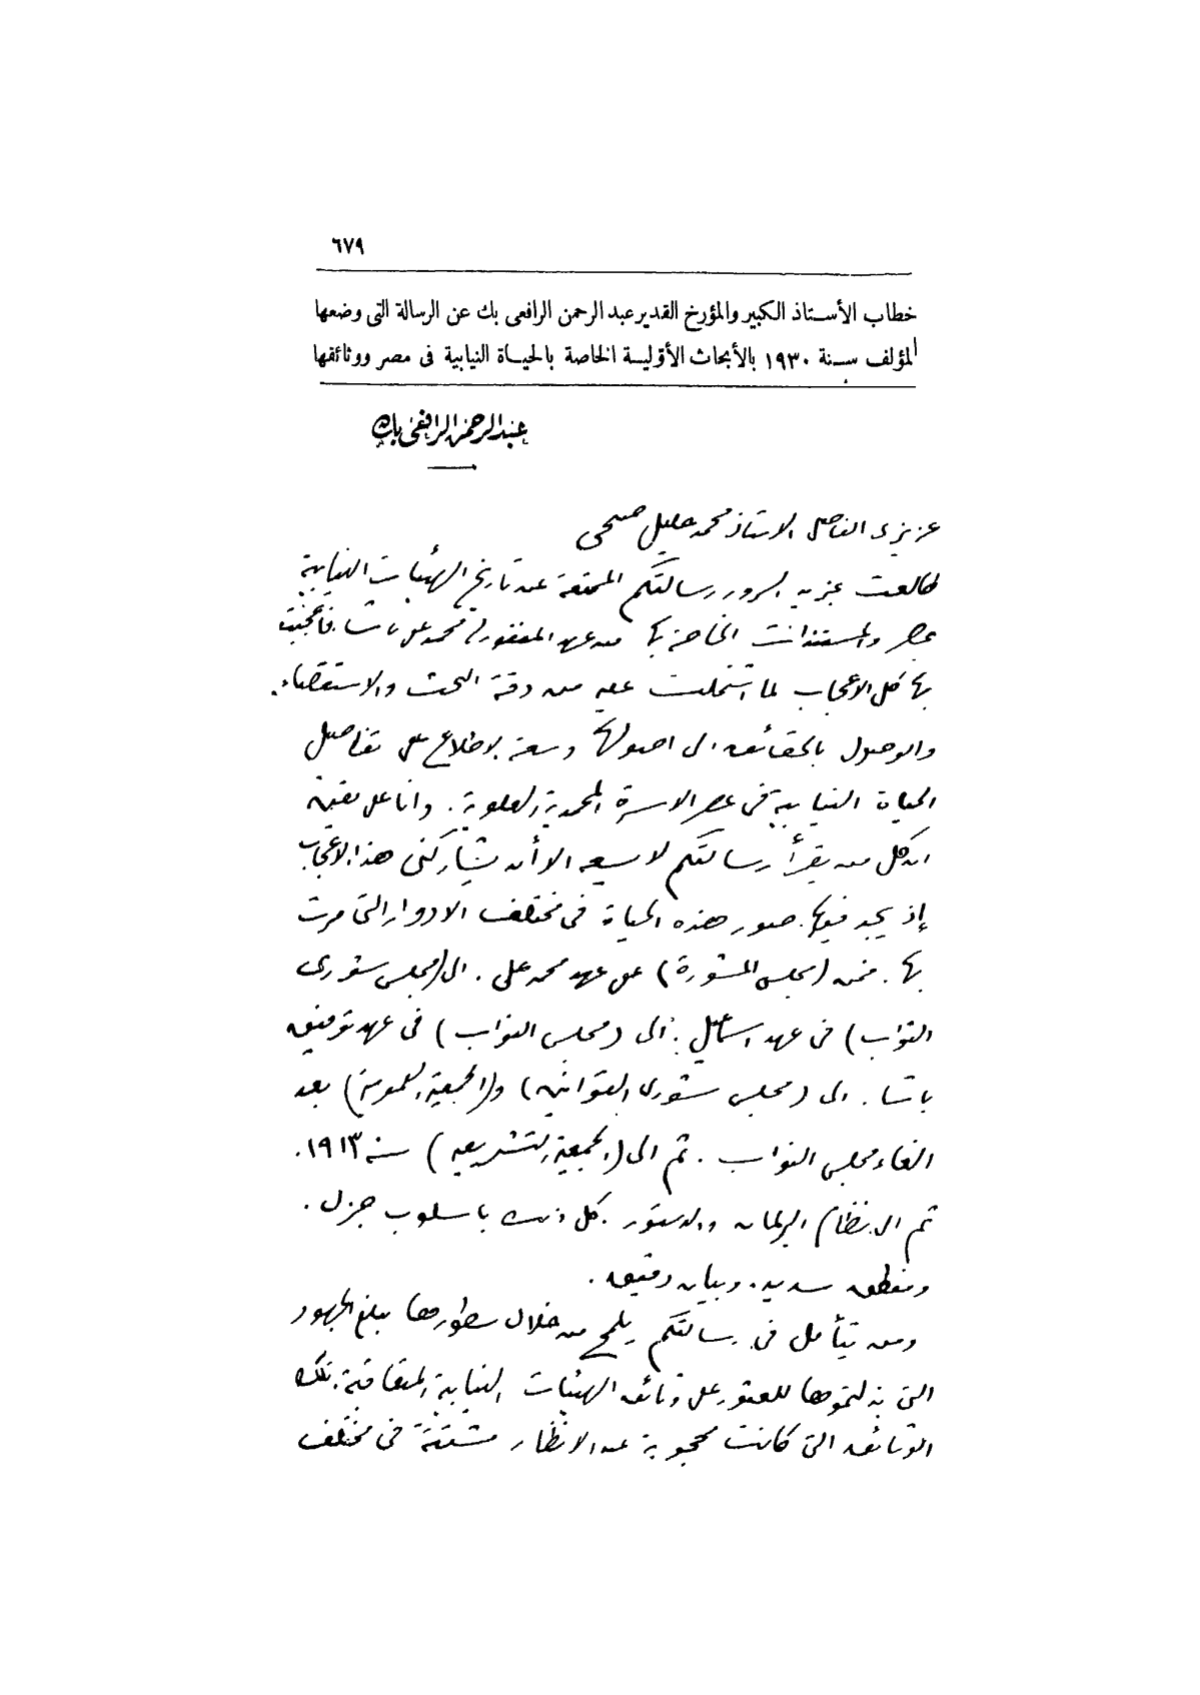 ٦٧٩
خطاب الأستاذ الكبير والمؤرخ القدير عبد الرحمن الرافعى بك عن الرسالة التى وضعها
المؤلف سنة ١٩٣٠ بالأبحاث الأولية الخاصة بالحياة النيابية فى مصر ووثائقها
عبد الرحمن الرافعى بك
عزيزى الفاضل الاستاذ محمد خليل صبحى
طالعت بمزيد السرور رسالتكم الممتعة عن تاريخ الهيئات النيابية
بمصر والمستندات الخاصة بها من عهد المغفور له محمد على باشا. فأعجبت
بها كل الاعجاب لما اشتملت عليه من دقة البحث والاستقصاء.
والوصول بالحقائق الى اصولها وسعة الاطلاع على تفاصيل
الحياة النيابية فى عصر الاسرة المحمدية العلوية. وانا على يقين
ان كل من يقرأ رسالتكم لا يسعه الا أن يشاركنى هذا الاعجاب
إذ يجد فيها صور هذه الحياة فى مختلف الادوار التى مرت
بها. فمن (مجلس المشورة) على عهد محمد على. الى (مجلس شورى
النواب) فى عهد اسماعيل. الى (مجلس النواب) فى عهد توفيق
باشا. الى (مجلس شورى القوانين) و(الجمعية العمومية) بعد
الغاء مجلس النواب. ثم الى (الجمعية التشريعية) سنة ١٩١٣.
ثم الى نظام البرلمان والدستور. كل ذلك باسلوب جزل.
ومنطق سديد. وبيان دقيق.
ومن يتأمل فى رسالتكم يلمح من خلال سطورها مبلغ الجهود
التى بذلتموها للعثور على وثائق الهيئات النيابية المتعاقبة. تلك
الوثائق التى كانت محجوبة عن الانظار مشتتة فى مختلف